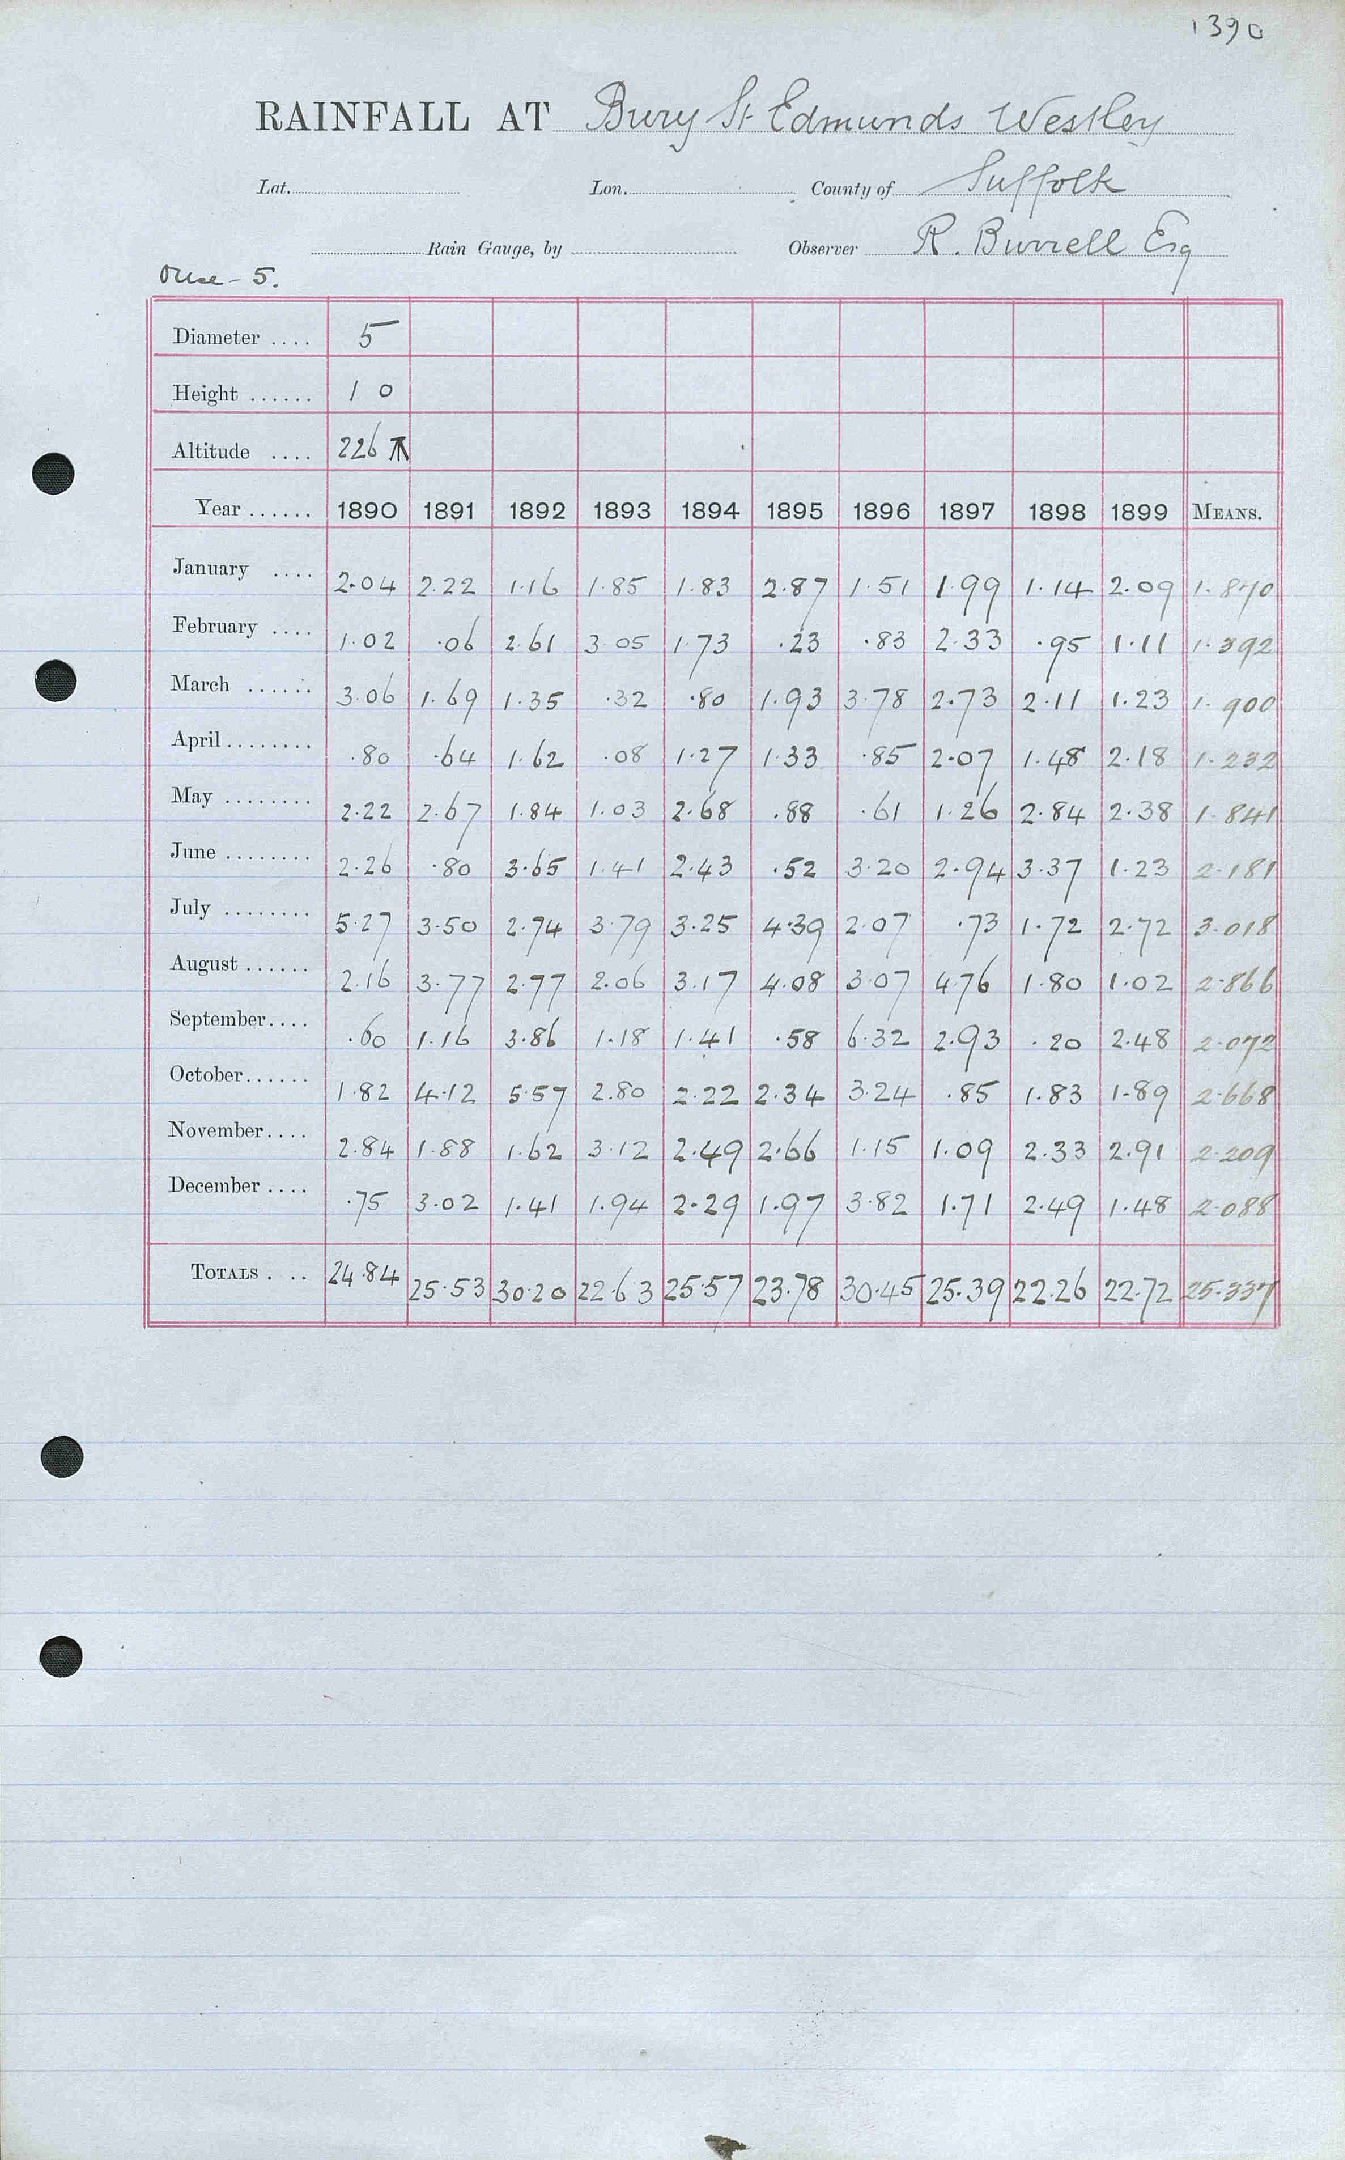 1390
RAINFALL AT Bury St Edmunds Westley
Lat. Lon. County of Suffolk
Rain Gauge, by Observer R. Burrell Esq
Ouse - 5.
Diameter .... 5
Height ...... 1 0
Altitude .... 226
Year ...... 1890 1891 1892 1893 1894 1895 1896 1897 1898 1899 MEANS.
January .... 2.04 2.22 1.16 1.85 1.83 2.87 1.51 1.99 1.14 2.09 1.870
February .... 1.02 .06 2.61 3.05 1.73 .23 .83 2.33 .95 1.11 1.392
March ...... 3.06 1.69 1.35 .32 .80 1.93 3.78 2.73 2.11 1.23 1.900
April ........ .80 .64 1.62 .08 1.27 1.33 .85 2.07 1.48 2.18 1.232
May ........ 2.22 2.67 1.84 1.03 2.68 .88 .61 1.26 2.84 2.38 1.841
June ........ 2.26 .80 3.65 1.41 2.43 .52 3.20 2.94 3.37 1.23 2.181
July ........ 5.27 3.50 2.74 3.79 3.25 4.39 2.07 .73 1.72 2.72 3.018
August ...... 2.16 3.77 2.77 2.06 3.17 4.08 3.07 4.76 1.80 1.02 2.866
September .... .60 1.16 3.86 1.18 1.41 .58 6.32 2.93 .20 2.48 2.072
October ...... 1.82 4.12 5.57 2.80 2.22 2.34 3.24 .85 1.83 1.89 2.668
November .... 2.84 1.88 1.62 3.12 2.49 2.66 1.15 1.09 2.33 2.91 2.209
December .... .75 3.02 1.41 1.94 2.29 1.97 3.82 1.71 2.49 1.48 2.088
TOTALS .... 24.84 25.53 30.20 22.63 25.57 23.78 30.45 25.39 22.26 22.72 25.337